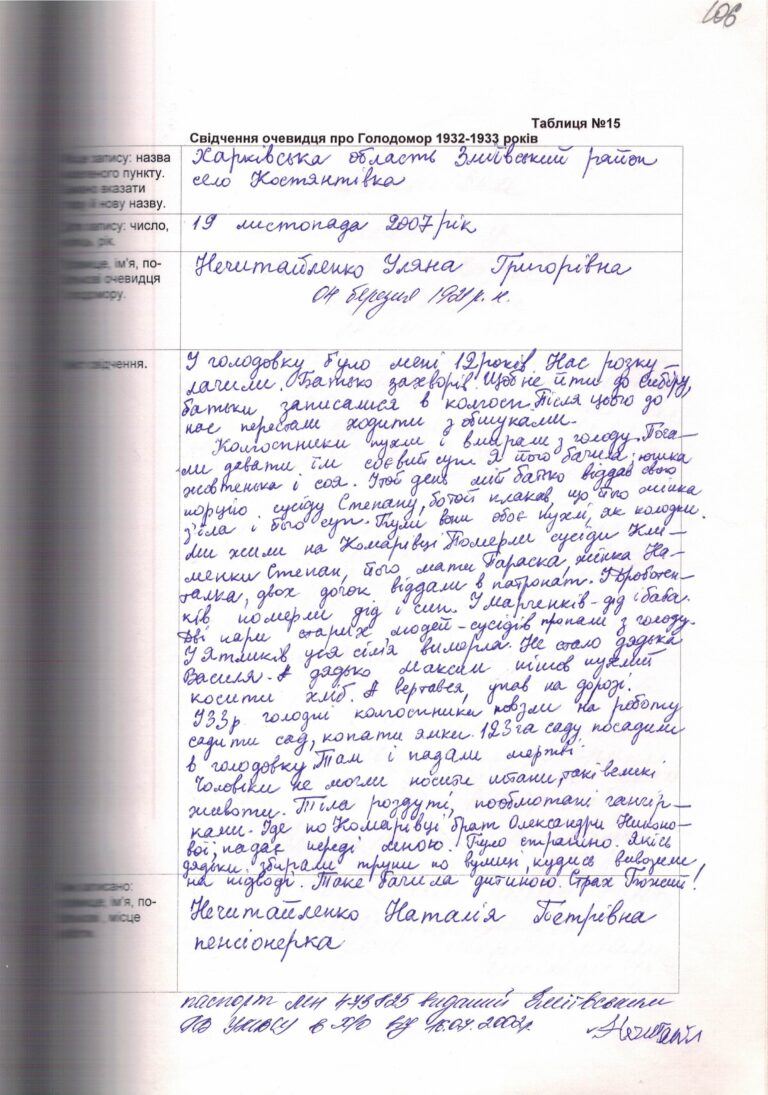 106
Таблиця №15
Свідчення очевидця про Голодомор 1932-1933 років
запису: назва
пункту.
вказати
й нову назву.
Харківська область Зміївський район
село Костянтівка
запису: число,
рік.
19 листопада 2007 рік
ім'я, по-
очевидця
Нечитайленко Уляна Григорівна
04 березня 1921 р. н.
свідчення.
У голодовку було мені 12 років. Нас розку
лачили. Батько захворів. Щоб не йти до Сибіру,
батьки записалися в колгосп. Після цього до
нас перестали ходити з обшуками.
Колгоспники пухли і вмирали з голоду. Поча-
ли давати їм соєвий суп. Я його бачила: юшка
жовтенька і соя. Утой день мій батько віддав свою
порцію сусіду Степану, бо той плакав, що його жінка
з'їла і його суп. Були вони обоє пухлі, як колодки.
Ми жили на Комарівці. Померли сусіди Кли-
менки Степан, його мати Параска, жінка На-
талка, двох дочок віддали в патронат. У Дроботен-
ків померли дід і син. У Марченків - дід і баба.
Дві пари старих людей-сусідів пропали з голоду.
У Ятликів уся сім'я вимерла. Не стало дядька
Василя. А дядько Максим пішов пухлий
косити хліб. А вертався, упав на дорозі.
У 33р голодні колгоспники повзли на роботу
садити сад, копати ямки. 123 га саду посадили
в голодовку. Там і падали мертві.
Чоловіки не могли носити штани, такі великі
животи. Тіла роздуті, пообмотані ганчір-
ками. Іде по Комарівці брат Олександри Никоно-
вої, падає переді мною. Було страшно. Якісь
дядьки збирали трупи по вулиці, кудись вивозили
на підводі. Таке бачила дитиною. Страх Божий!
записано:
ім'я, по-
місце
Нечитайленко Наталія Петрівна
пенсіонерка
паспорт МН 473825 виданий Зміївським
РВ УМВСУ в ХО від 16.04.2002р.